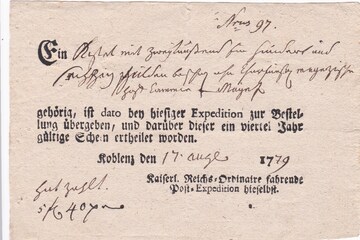 Nro 97.
Ein Kistel mit zweytausend ein hundert und
sechszig gulden
post
gehörig, ist dato bey hiesiger Expedition zur Bestel-
lung übergeben, und darüber dieser ein viertel Jahr
gültige Schein ertheilet worden.
Koblenz den 17 augst 1779
Kaiserl. Reichs-Ordinaire fahrende
Post-Expedition hieselbst.
hat zahlt.
5 fl 40 xr